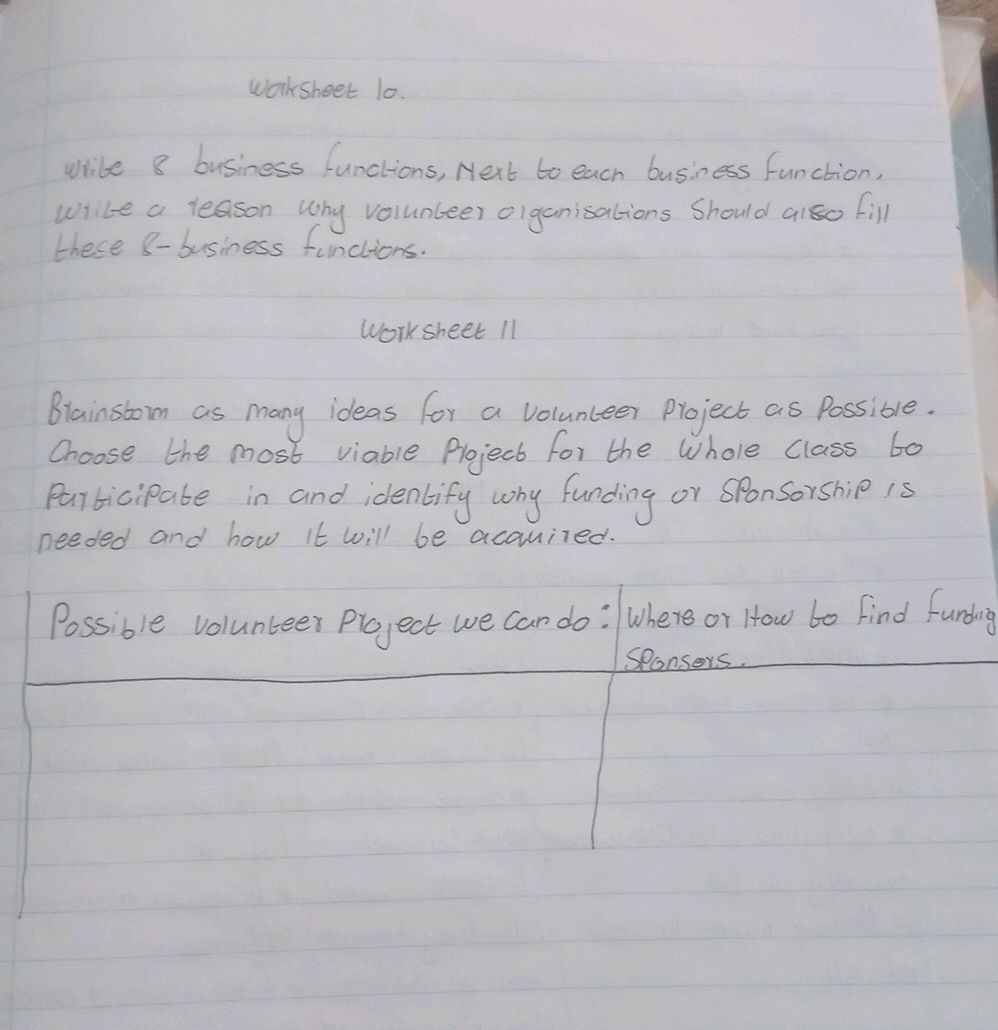 Worksheet 10.
Write 8 business functions, Next to each business function,
write a reason why volunteer organisations should also fill
these 8-business functions.
Worksheet 11
Brainstorm as many ideas for a volunteer Project as Possible.
Choose the most viable Project for the whole class to
Participate in and identify why funding or sponsorship is
needed and how it will be acquired.
Possible volunteer Project we can do: Where or How to find funding
sponsors.